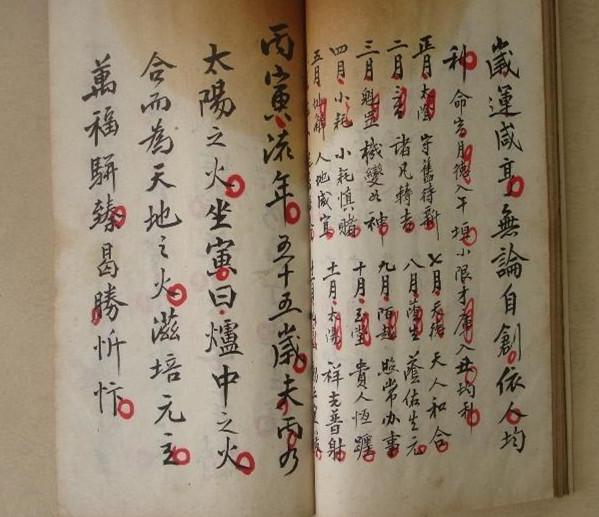 歲運咸亨無論自創依人均
利命宮月德入午垣小限才庫入丑均利
正月太陰守舊待新 七月天德天人和合
二月諸凡轉吉 八月蔭生蔭佑生元
三月魁罡機變如神 九月陌越照常办事
四月小耗小耗慎賭 十月玉堂貴人恆躔
五月人地咸宜 十一月太陽祥光普射
丙寅流年五十五歲未雨乃
太陽之火坐寅曰爐中之火
合而為天地之火滋培元立
萬福駢臻曷勝忻忭